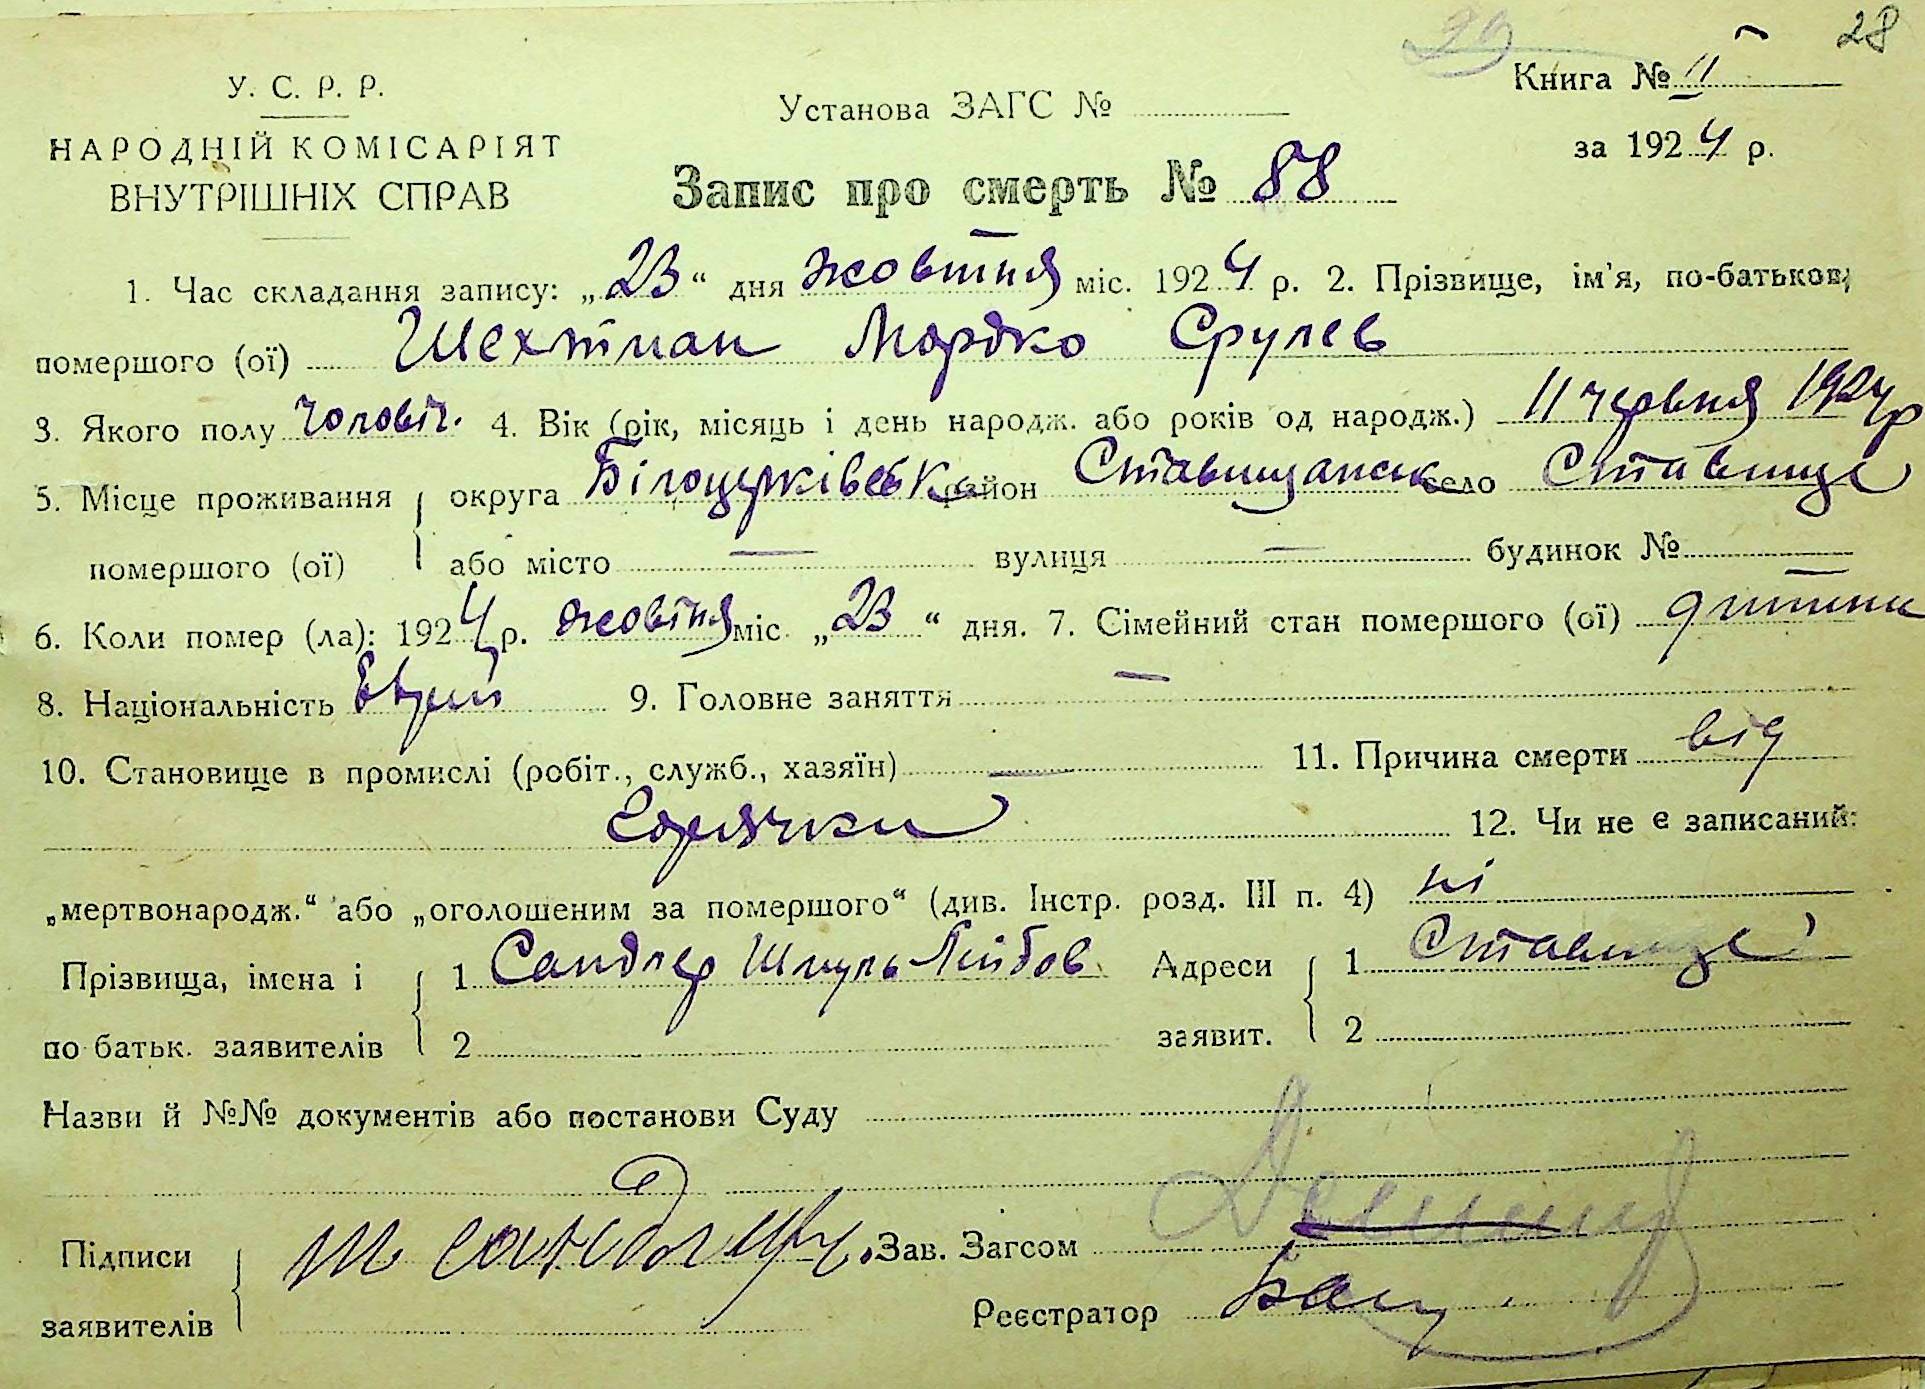 29 28
У. С. Р. Р.
НАРОДНІЙ КОМІСАРІЯТ
ВНУТРІШНІХ СПРАВ
Установа ЗАГС №
Книга № II
за 1924 р.
Запис про смерть № 88
1. Час складання запису: „23“ дня жовтня міс. 1924 р. 2. Прізвище, ім'я, по-батькові
помершого (ої) Шехтман Мордко Срулев
3. Якого полу чоловіч. 4. Вік (рік, місяць і день народж. або років од народж.) 11 червня 1924 р
5. Місце проживання помершого (ої) округа Білоцерківськ район Ставищанськ село Ставище
або місто — вулиця — будинок № —
6. Коли помер (ла): 1924 р. жовтня міс. „23“ дня. 7. Сімейний стан помершого (ої) дитина
8. Національність Еврей 9. Головне заняття —
10. Становище в промислі (робіт., служб., хазяїн) — 11. Причина смерти від
горячки 12. Чи не є записаний:
„мертвонародж.“ або „оголошеним за помершого“ (див. Інстр. розд. III п. 4) ні
Прізвища, імена і по батьк. заявителів 1 Сандлер Шмуль Лейбов Адреси заявит. 1 Ставище
2 2
Назви й №№ документів або постанови Суду
Підписи заявителів Ш Сандлер. Зав. Загсом
Реєстратор